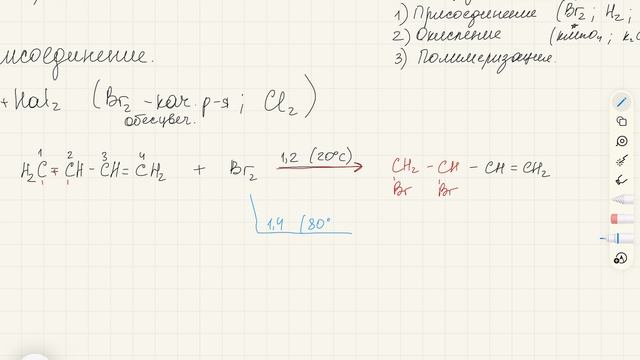 1) Присоединение (Br2 ; H2 ;
2) Окисление (kmno4 ; k2C
3) Полимеризация.
исоединение.
+ Hal2 (Br2 - кач. р-я ; Cl2)
обесцвеч.
1 2 3 4
H2C = CH - CH = CH2 + Br2 1,2 (20°C) CH2 - CH - CH = CH2
Br Br
1,4 (80°